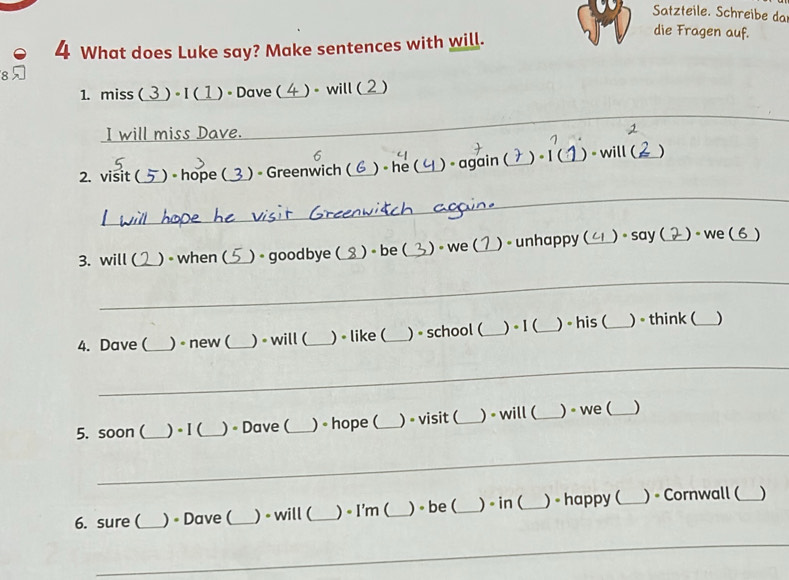 Satzteile. Schreibe da
die Fragen auf.
4 What does Luke say? Make sentences with will.
8
1. miss (3) • I (1) • Dave (4) • will (2)
I will miss Dave.
5 3 6 4 7 1 2
2. visit (5) • hope (3) • Greenwich (6) • he (4) • again (7) • I (1) • will (2)
I will hope he visit Greenwitch again.
3. will (2) • when (5) • goodbye (8) • be (3) • we (1) • unhappy (4) • say (2) • we (6)
4. Dave (__) • new (__) • will (__) • like (__) • school (__) • I (__) • his (__) • think (__)
5. soon (__) • I (__) • Dave (__) • hope (__) • visit (__) • will (__) • we (__)
6. sure (__) • Dave (__) • will (__) • I'm (__) • be (__) • in (__) • happy (__) • Cornwall (__)